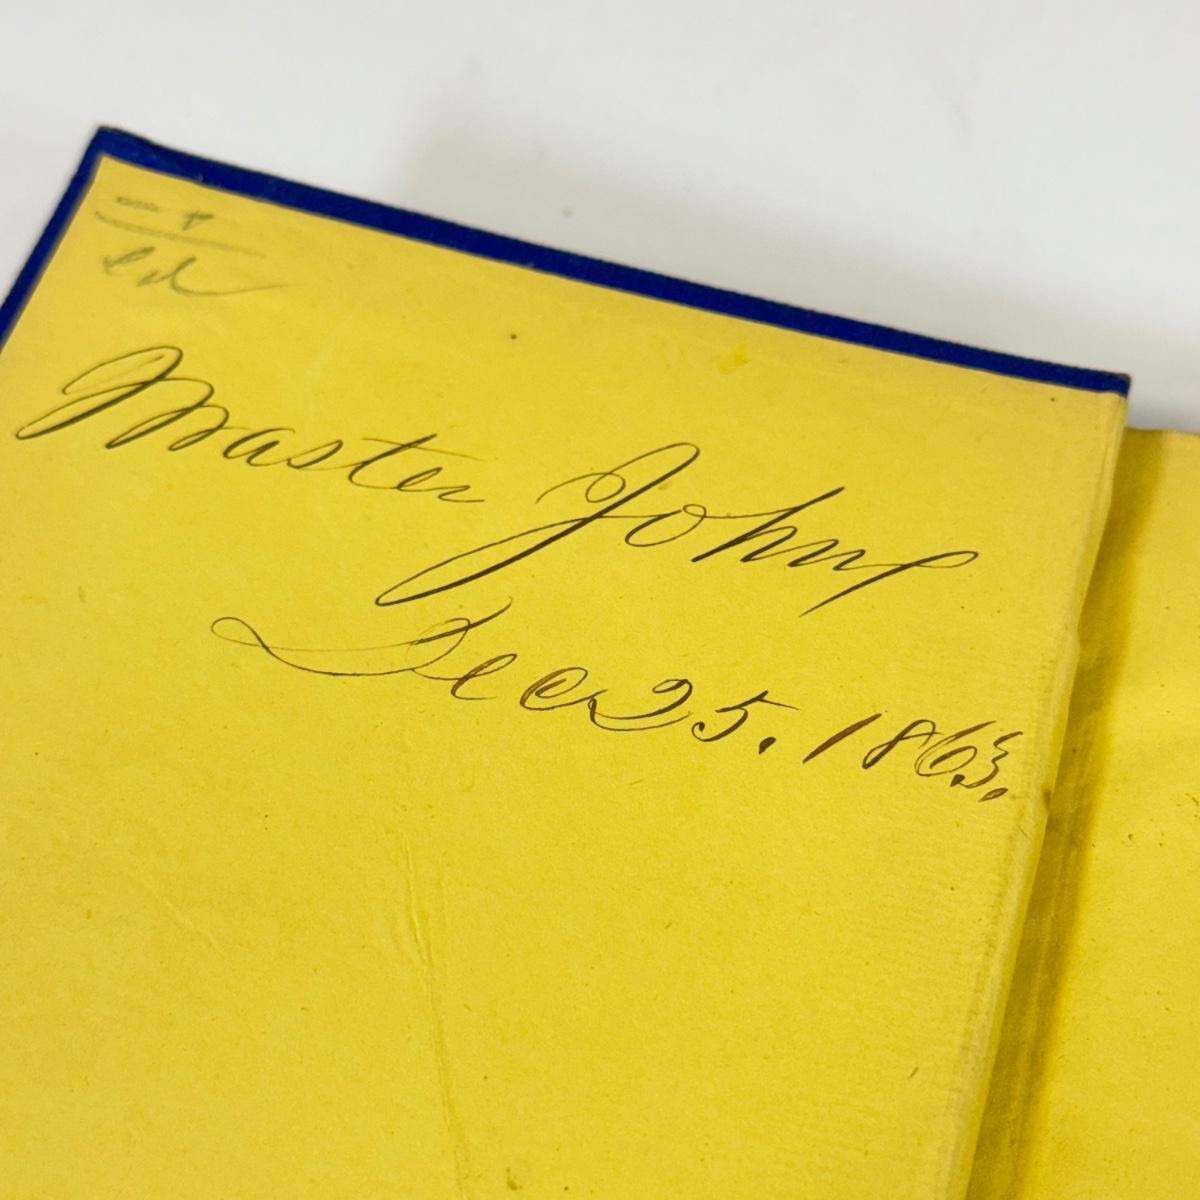 Master John
Dec 25. 1863.